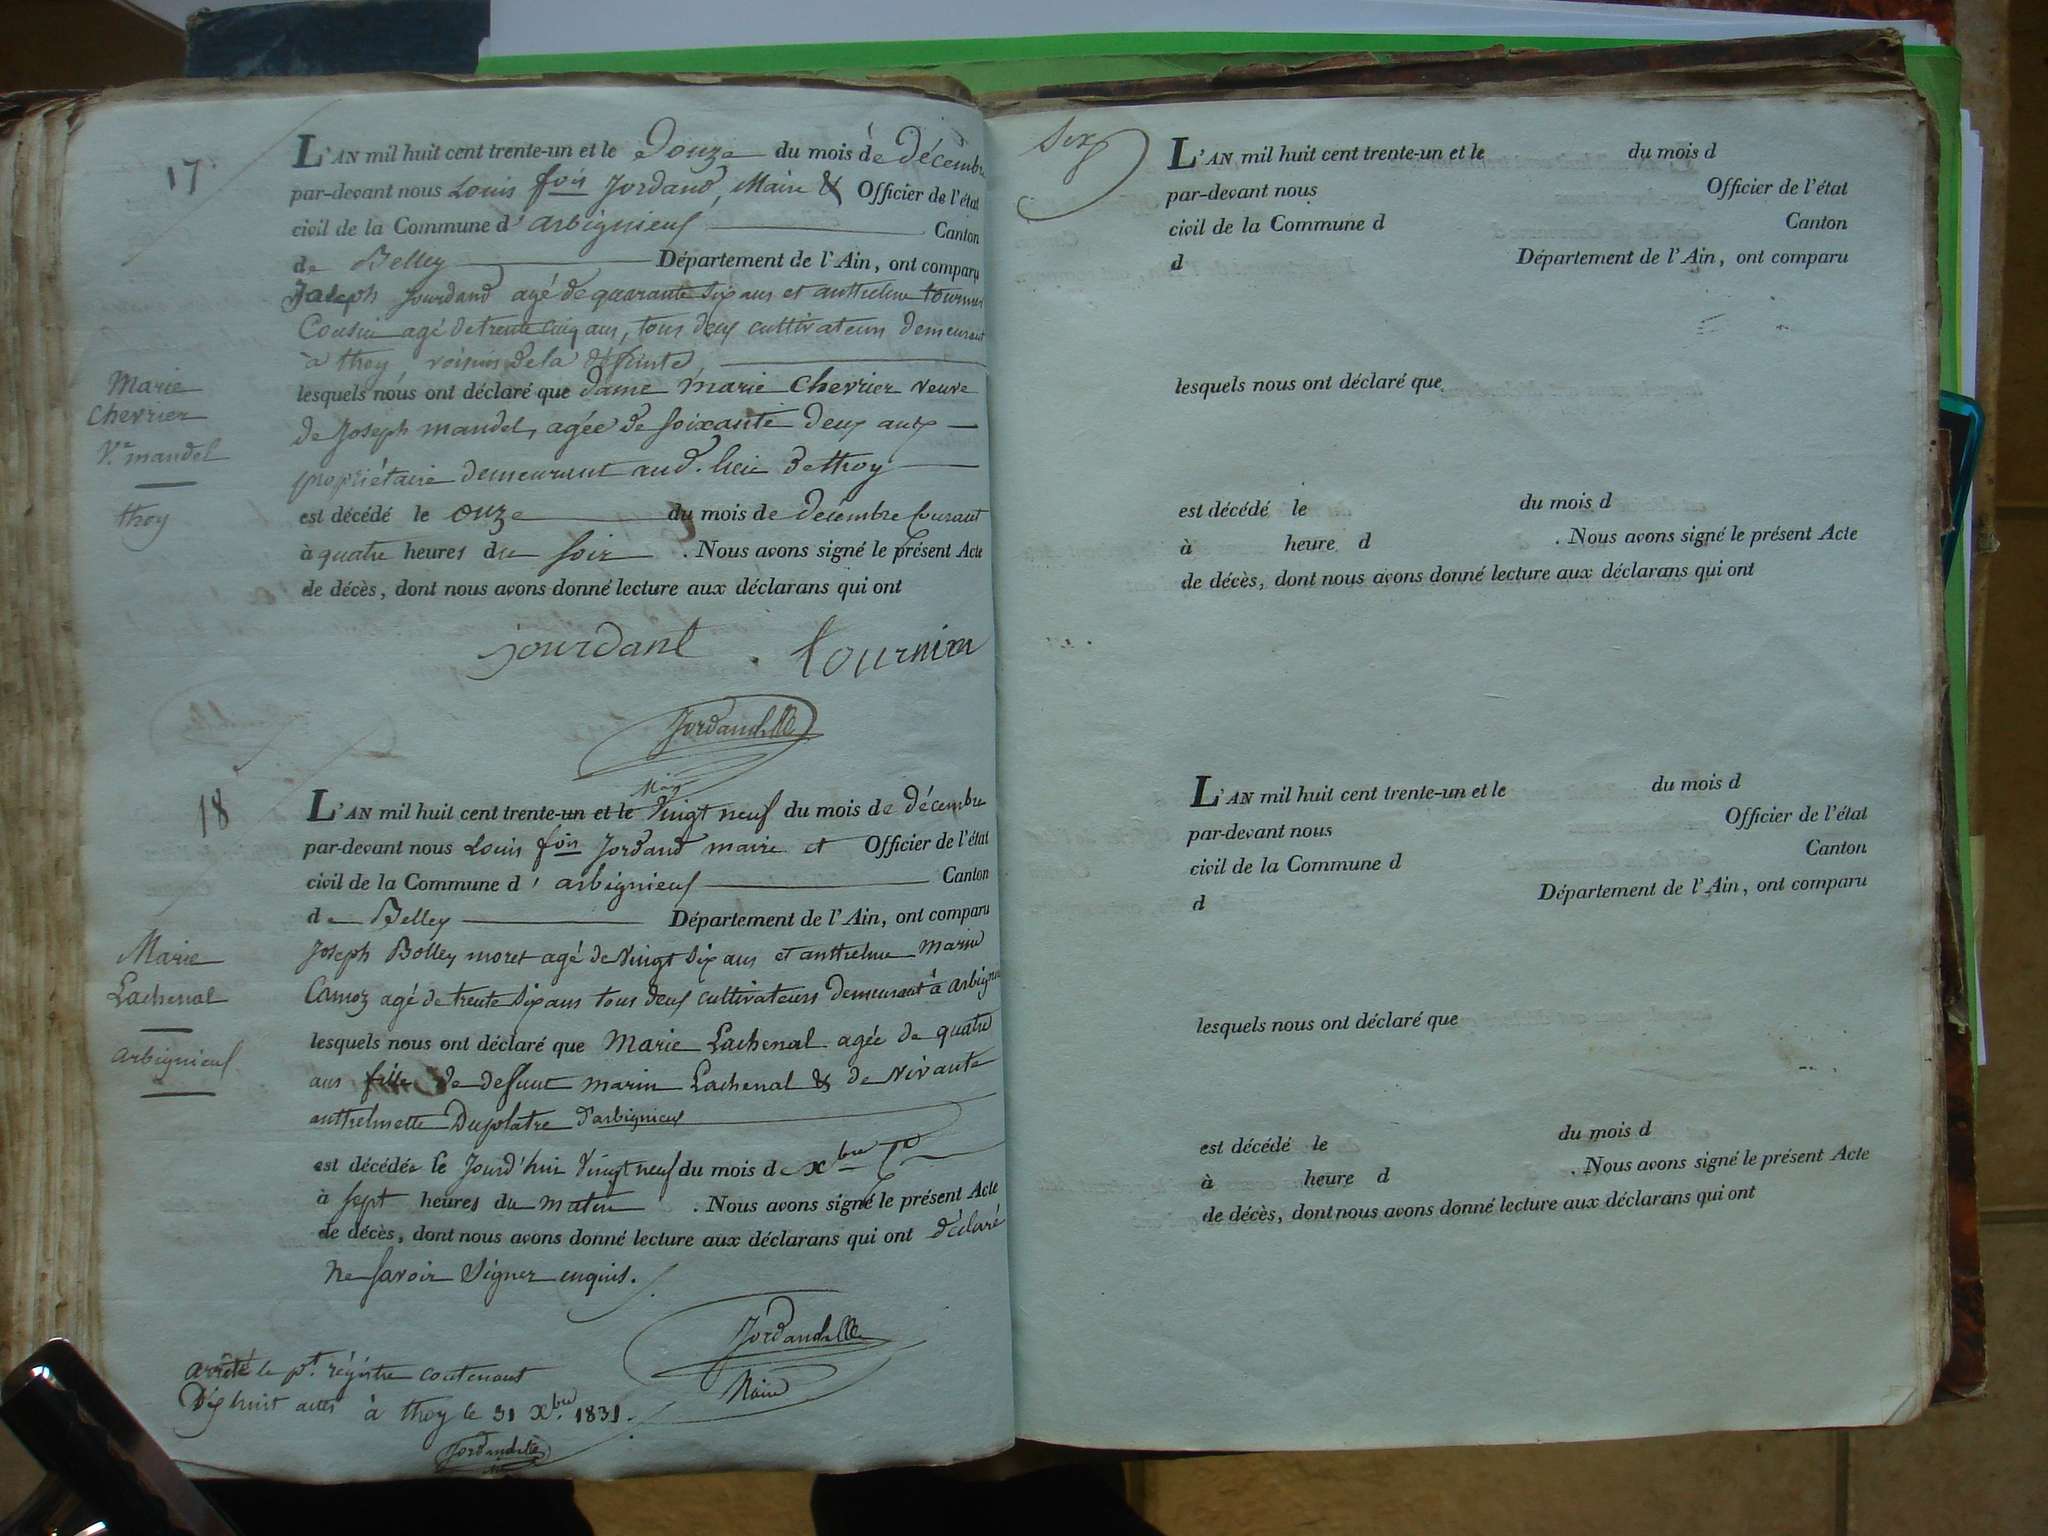 17.
L'AN mil huit cent trente-un et le Douze du mois de décembre
par-devant nous Louis fois Jordand, Maire & Officier de l'état
civil de la Commune d'arbignieux Canton
de Belley Département de l'Ain, ont comparu
Joseph Jourdand agé de quarante six ans et anthelme tournier
Cousin agé de trente cinq ans, tous deux cultivateurs demeurant
à thoy, voisins de la défunte
Marie
Chevrier
Ve mandel
thoy
lesquels nous ont déclaré que dame marie Chevrier veuve
de Joseph mandel, agée de soixante deux ans
propriétaire demeurant aud. lieu de thoy
est décédé le onze du mois de décembre courant
à quatre heures du soir . Nous avons signé le présent Acte
de décès, dont nous avons donné lecture aux déclarans qui ont
jourdant tournier
Jordand
Maire
18
L'AN mil huit cent trente-un et le Vingt neuf du mois de décembre
par-devant nous Louis fois Jordand maire et Officier de l'état
civil de la Commune d'arbignieux Canton
de Belley Département de l'Ain, ont comparu
Joseph Bolley moret agé de vingt six ans et anthelme marin
Camoz agé de trente six ans tous deux cultivateurs demeurant à arbignieux
Marie
Lachenal
arbignieux
lesquels nous ont déclaré que Marie Lachenal agée de quatre
ans fille de defunt marin Lachenal & de vivante
anthelmette Duplatre d'arbignieux
est décédée le Jourd'hui vingt neuf du mois de xbre
à sept heures du matin . Nous avons signé le présent Acte
de décès, dont nous avons donné lecture aux déclarans qui ont déclaré
ne savoir signer enquis.
Jordand
Maire
arrêté le pt. régistre contenant
Dix huit actes à thoy le 31 xbre 1831.
Jordand
six
L'AN mil huit cent trente-un et le du mois d
par-devant nous Officier de l'état
civil de la Commune d Canton
d Département de l'Ain, ont comparu
lesquels nous ont déclaré que
est décédé le du mois d
à heure d . Nous avons signé le présent Acte
de décès, dont nous avons donné lecture aux déclarans qui ont
L'AN mil huit cent trente-un et le du mois d
par-devant nous Officier de l'état
civil de la Commune d Canton
d Département de l'Ain, ont comparu
lesquels nous ont déclaré que
est décédé le du mois d
à heure d . Nous avons signé le présent Acte
de décès, dont nous avons donné lecture aux déclarans qui ont